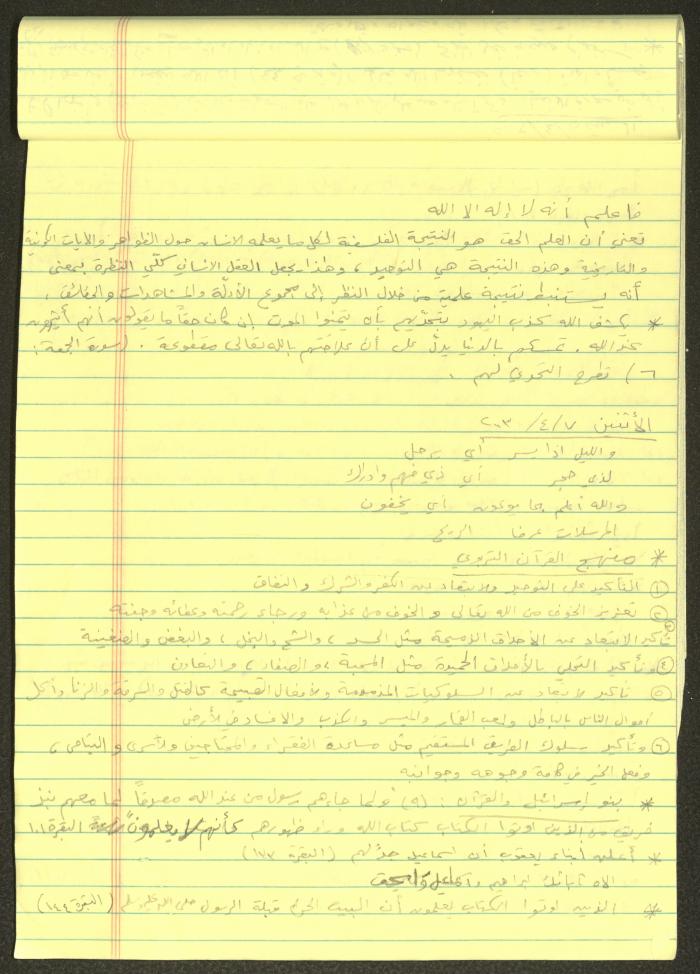 فاعلم أنه لا إله إلا الله
تعني أن العلم الحق هو النتيجة الفلسفية لكل ما يعلمه الانسان حول الظواهر والآيات الكونية
والتاريخية وهذه النتيجة هي التوحيد، وهذا يجعل العقل الانساني كلّي النظرة بمعنى
أنه يستنبط نتيجة علمية من خلال النظر إلى مجموع الأدلة والمشاهدات والحقائق.
* يكشف الله كذب اليهود بتحدّيهم بأن يتمنوا الموت إن كان حقاً ما يقولون أنهم
عند الله. تمسكهم بالدنيا يدلّ على أن علاقتهم بالله تعالى مقطوعة. (سورة الجمعة:
٦) تطرح التحدي لهم.
الأثنين ٢٠٠٣/٤/٧
والليل اذا يسر أي يرحل
لذي حجر أي ذي فهم وادراك
والله أعلم بما يوعون أي يخفون
المرسلات عرفا الريح
* منهج القرآن التربوي
① التأكيد على التوحيد والابتعاد عن الكفر والشرك والنفاق
② تعزيز الخوف من الله تعالى والخوف من عذابه ورجاء رحمته وعفائه وجنته
③ تأكيد الابتعاد عن الاخلاق الذميمة مثل الحسد، والشح والبخل، والبغض والضغينة
④ وتأكيد التحلي بالأخلاق الحميدة مثل المحبة، و الصفاء، والتعاون
⑤ تأكيد لابتعاد عن السلوكيات المذمومة ولأفعال القبيحة كالقتل والسرقة والزنا وأكل
اموال الناس بالباطل ولعب القمار والميسر والكذب والافساد في الأرض
⑥ وتأكيد سلوك الطريق المستقيم مثل مساعدة الفقراء والمحتاجين ولأسرى واليتامى،
وفعل الخير في كافة وجوهه وجوانبه
* بنو إسرائيل والقرآن: (٩) ولما جاءهم رسول من عند الله مصدقاً لما معهم نبذ
فريق من الذين اوتوا الكتاب كتاب الله وراء ظهورهم كأنهم لا يعلمون البقرة ١٠١
* أعلن أبناء يعقوب أن اسماعيل جدّ لهم (البقرة ١٣٣)
الاه آبائك ابراهيم واسماعيل واسحق
* الذين اوتوا الكتاب يعلمون أن البيت الحرام قبلة الرسول صلى الله عليه وسلم (البقرة ١٤٤)